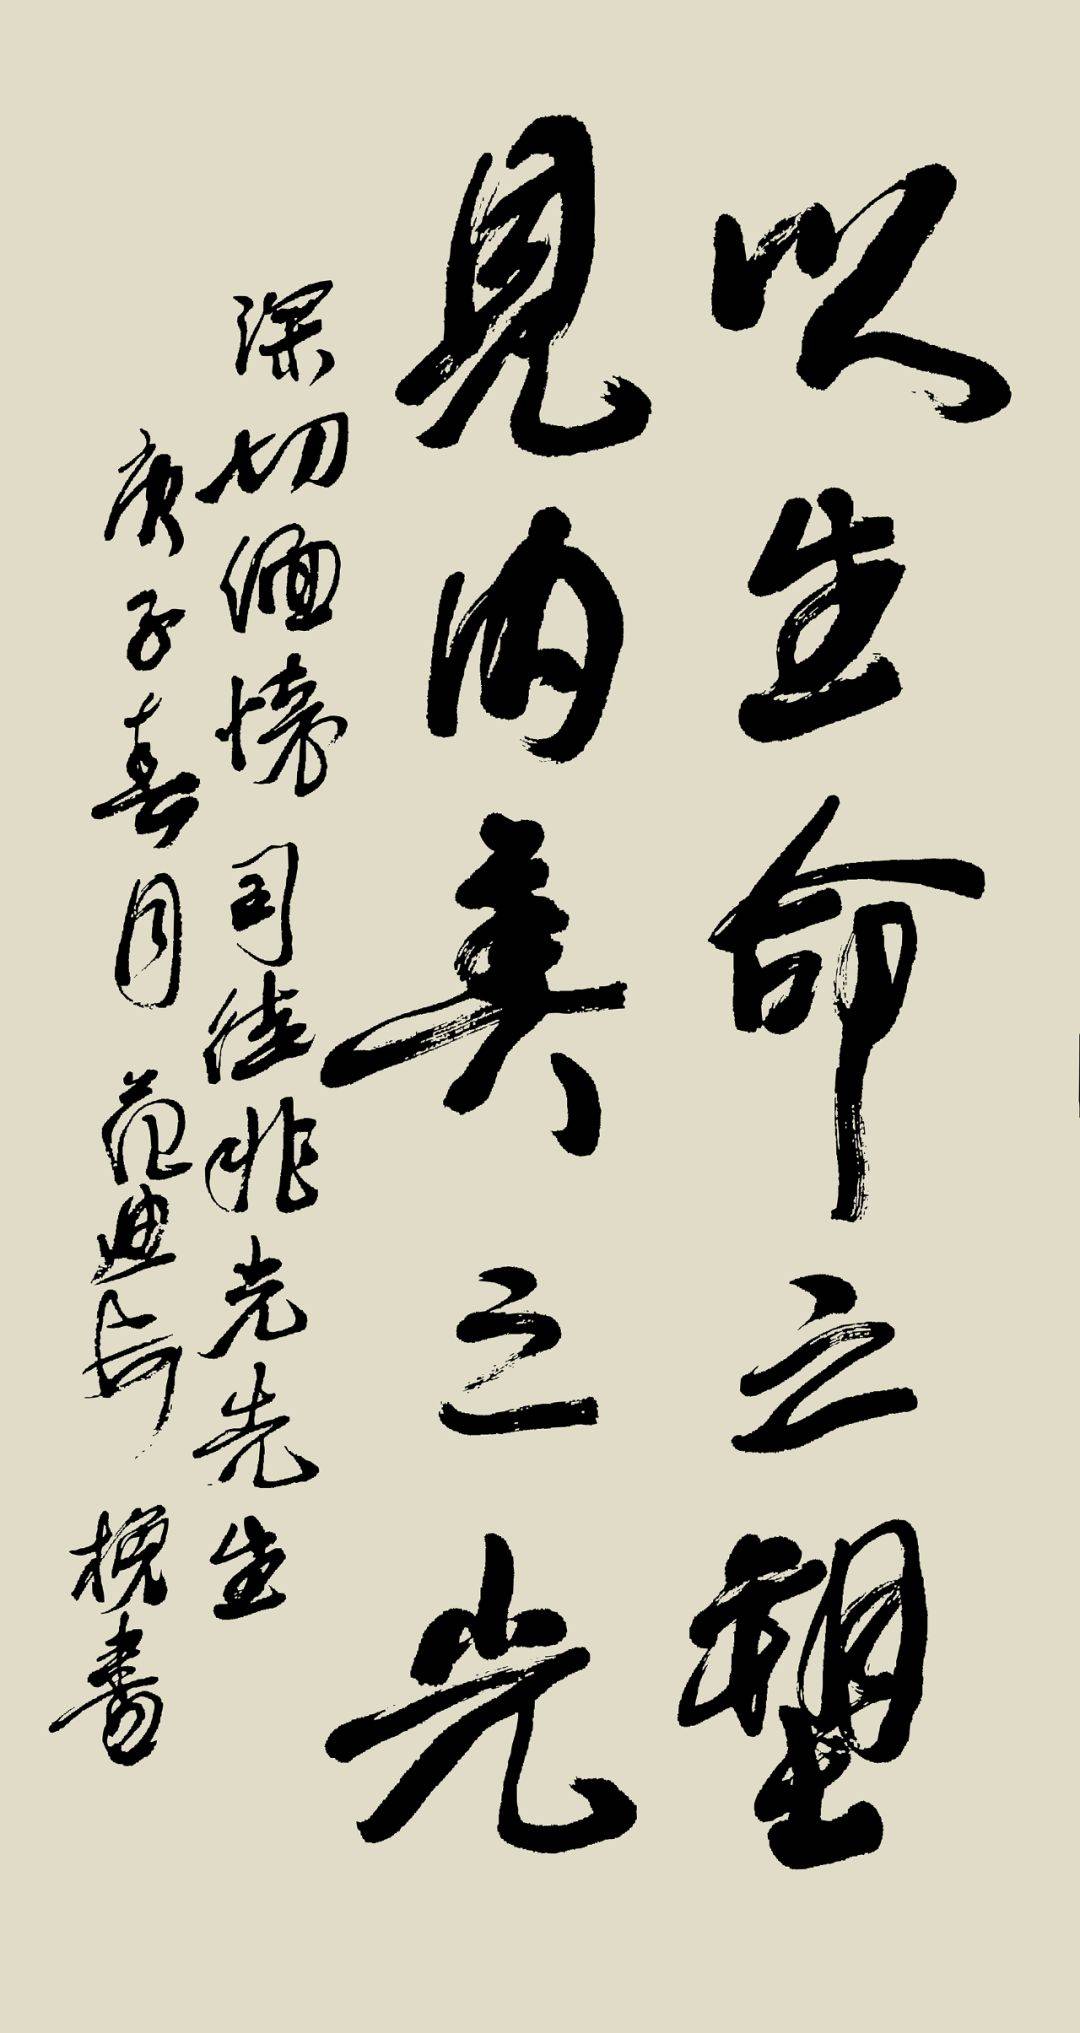 以生命立塑
見内美之光
深切緬懷 司徒兆光先生
庚子春月 范迪安 挽書